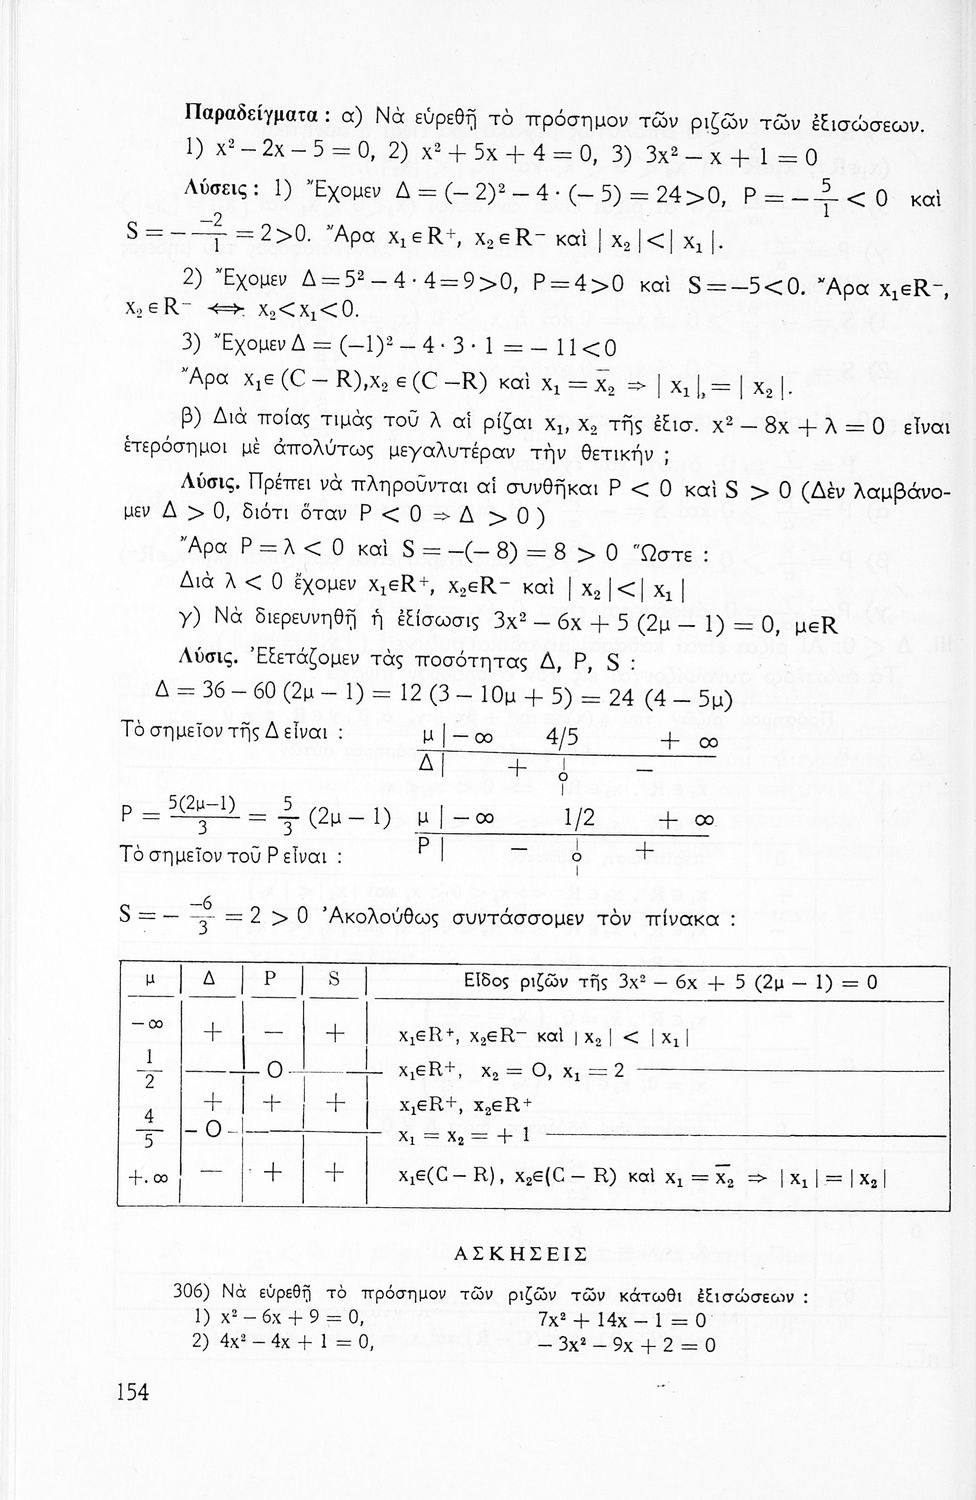 Παραδείγματα : α) Νὰ εὑρεθῇ τὸ πρόσημον τῶν ριζῶν τῶν ἐξισώσεων.
1) x² – 2x – 5 = 0, 2) x² + 5x + 4 = 0, 3) 3x² – x + 1 = 0
Λύσεις : 1) Ἔχομεν Δ = (– 2)² – 4 · (– 5) = 24>0, P = – 5/1 < 0 καὶ
S = – –2/1 = 2>0. Ἄρα x₁ϵR⁺, x₂ϵR⁻ καὶ | x₂ |<| x₁ |.
2) Ἔχομεν Δ=5² – 4 · 4=9>0, P=4>0 καὶ S=–5<0. Ἄρα x₁ϵR⁻,
x₂ϵR⁻ ⟺ x₂<x₁<0.
3) Ἔχομεν Δ = (–1)² – 4 · 3 · 1 = – 11<0
Ἄρα x₁ϵ (C – R),x₂ ϵ (C –R) καὶ x₁ = x̄₂ ⇒ | x₁ | = | x₂ |.
β) Διὰ ποίας τιμὰς τοῦ λ αἱ ρίζαι x₁, x₂ τῆς ἐξισ. x² – 8x + λ = 0 εἶναι
ἑτερόσημοι μὲ ἀπολύτως μεγαλυτέραν τὴν θετικήν ;
Λύσις. Πρέπει νὰ πληροῦνται αἱ συνθῆκαι P < 0 καὶ S > 0 (Δὲν λαμβάνο-
μεν Δ > 0, διότι ὅταν P < 0 ⇒ Δ > 0 )
Ἄρα P = λ < 0 καὶ S = –(– 8) = 8 > 0 Ὥστε :
Διὰ λ < 0 ἔχομεν x₁ϵR⁺, x₂ϵR⁻ καὶ | x₂ |<| x₁ |
γ) Νὰ διερευνηθῇ ἡ ἐξίσωσις 3x² – 6x + 5 (2μ – 1) = 0, μϵR
Λύσις. Ἐξετάζομεν τὰς ποσότητας Δ, P, S :
Δ = 36 – 60 (2μ – 1) = 12 (3 – 10μ + 5) = 24 (4 – 5μ)
Τὸ σημεῖον τῆς Δ εἶναι : μ | – ∞ 4/5 + ∞
Δ | + 0 –
P = 5(2μ–1)/3 = 5/3 (2μ – 1) μ | – ∞ 1/2 + ∞
Τὸ σημεῖον τοῦ P εἶναι : P | – 0 +
S = – –6/3 = 2 > 0 Ἀκολούθως συντάσσομεν τὸν πίνακα :
μ Δ P S Εἶδος ριζῶν τῆς 3x² – 6x + 5 (2μ – 1) = 0
–∞ + – + x₁ϵR⁺, x₂ϵR⁻ καὶ | x₂ | < | x₁ |
1/2 0 x₁ϵR⁺, x₂ = 0, x₁ = 2
+ + + x₁ϵR⁺, x₂ϵR⁺
4/5 0 x₁ = x₂ = + 1
+∞ – + + x₁ϵ(C– R), x₂ϵ(C – R) καὶ x₁ = x̄₂ ⇒ | x₁ | = | x₂ |
ΑΣΚΗΣΕΙΣ
306) Νὰ εὑρεθῇ τὸ πρόσημον τῶν ριζῶν τῶν κάτωθι ἐξισώσεων :
1) x² – 6x + 9 = 0, 7x² + 14x – 1 = 0
2) 4x² – 4x + 1 = 0, – 3x² – 9x + 2 = 0
154